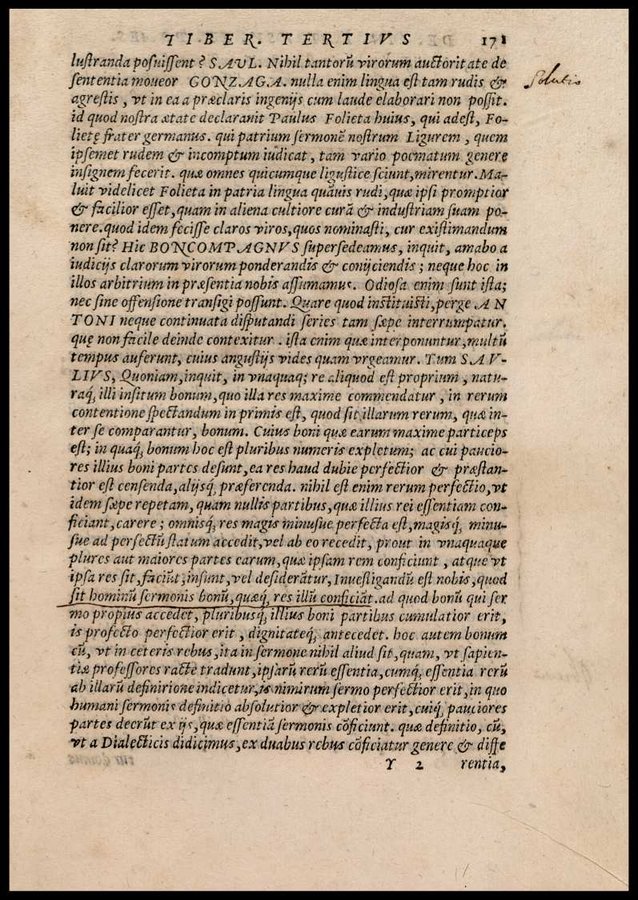 LIBER. TERTIVS 171
lustranda posuissent? SAVL. Nihil tantorũ virorum auctoritate de
sententia moueor GONZAGA. nulla enim lingua est tam rudis &
agrestis, vt in ea a præclaris ingenijs cum laude elaborari non possit.
id quod nostra ætate declarauit Paulus Folieta huius, qui adest, Fo-
lietę frater germanus. qui patrium sermonẽ nostrum Ligurem, quem
ipsemet rudem & incomptum iudicat, tam vario poematum genere
insignem fecerit. quæ omnes quicumque ligustice sciunt, mirentur. Ma-
luit videlicet Folieta in patria lingua quãuis rudi, quæ ipsi promptior
& facilior esset, quam in aliena cultiore curã & industriam suam po-
nere. quod idem fecisse claros viros, quos nominasti, cur existimandum
non sit? Hic BONCOMPAGNVS supersedeamus, inquit, amabo a
iudicijs clarorum virorum ponderandis & conijciendis; neque hoc in
illos arbitrium in præsentia nobis assumamus. Odiosa enim sunt ista;
nec sine offensione transigi possunt. Quare quod instituisti, perge AN
TONI neque continuata disputandi series tam sæpe interrumpatur.
quę non facile deinde contexitur. ista enim quæ interponuntur, multũ
tempus auferunt, cuius angustijs vides quam vrgeamur. Tum SAV-
LIVS, Quoniam, inquit, in vnaquaq; re aliquod est proprium, natu-
raq́, illi insitum bonum, quo illa res maxime commendatur, in rerum
contentione spectandum in primis est, quod sit illarum rerum, quæ in-
ter se comparantur, bonum. Cuius boni quæ earum maxime particeps
est; in quaq́, bonum hoc est pluribus numeris expletum; ac cui paucio-
res illius boni partes desunt, ea res haud dubie perfectior & præstan-
tior est censenda, alijsq́, præferenda. nihil est enim rerum perfectio, vt
idem sæpe repetam, quam nullis partibus, quæ illius rei essentiam con-
ficiant, carere; omnisq́, res magis minusue perfecta est, magisq́, minu-
sue ad perfectũ statum accedit, vel ab eo recedit, prout in vnaquaque
plures aut maiores partes earum, quæ ipsam rem conficiunt, atque vt
ipsa res sit, faciũt, insunt, vel desiderãtur, Inuestigandũ est nobis, quod
sit hominũ sermonis bonũ, quæq́, res illũ conficiãt. ad quod bonũ qui ser
mo propius accedet, pluribusq́, illius boni partibus cumulatior erit,
is profecto perfectior erit, dignitateq́, antecedet. hoc autem bonum
cũ, vt in ceteris rebus, ita in sermone nihil aliud sit, quam, vt sapien-
tiæ professores racte tradunt, ipsarũ rerũ essentia, cumq́, essentia rerũ
ab illarũ definirione indicetur, is nimirum sermo perfectior erit, in quo
humani sermonis definitio absolutior & expletior erit, cuiq́, pauciores
partes decrũt ex ijs, quæ essentiã sermonis cõficiunt. quæ definitio, cũ,
vt a Dialecticis didicimus, ex duabus rebus cõficiatur genere & diffe
Y 2 rentia,
Solutio